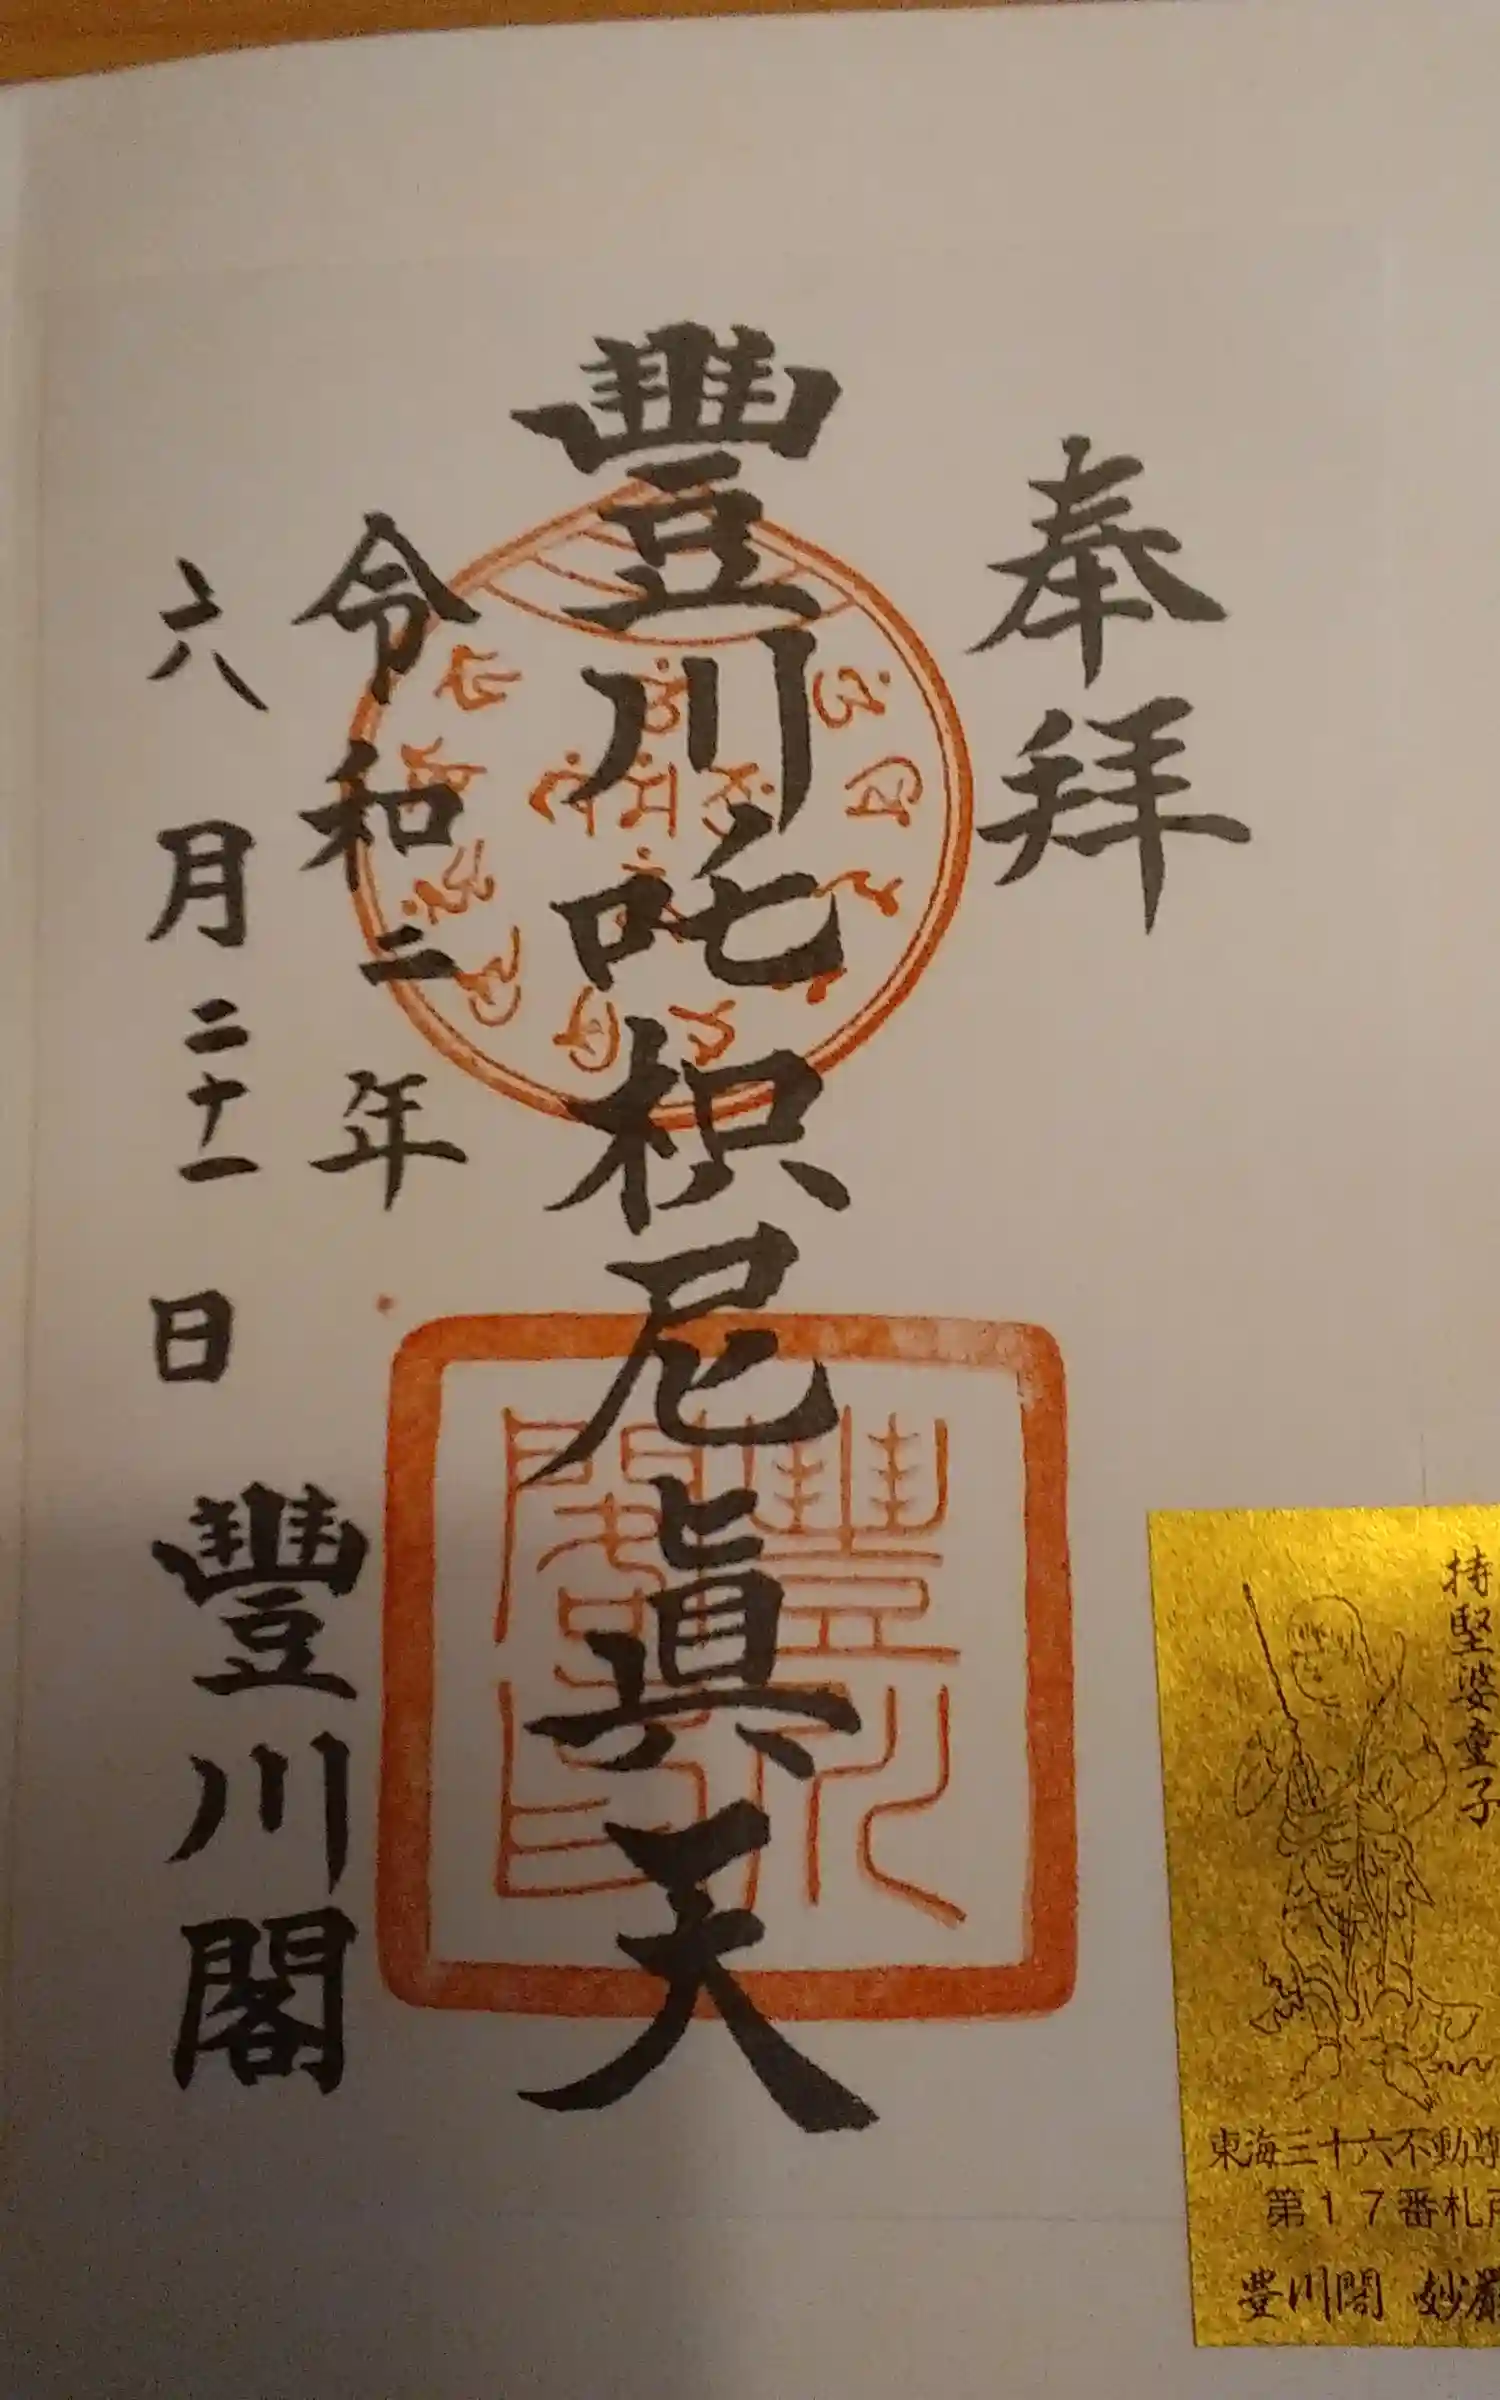 奉拝
豐川吒枳尼眞天
令和二年
六月二十一日
豐川閣
豐川閣印
持堅婆童子
東海三十六不動尊
第17番札所
豊川閣 妙厳